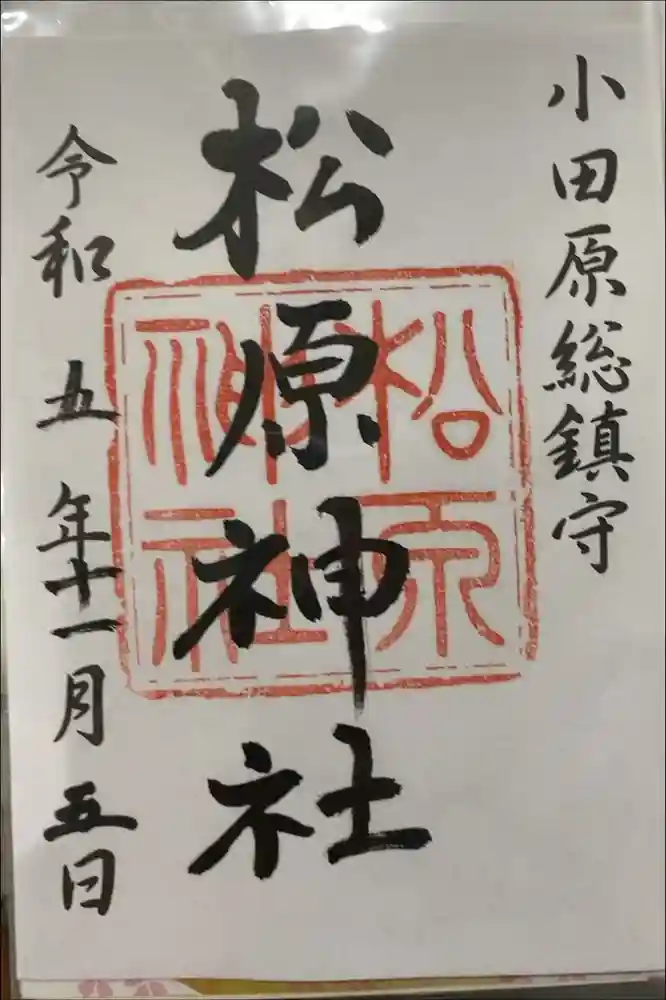 小田原総鎮守
松原神社
松原神社
令和五年十一月五日